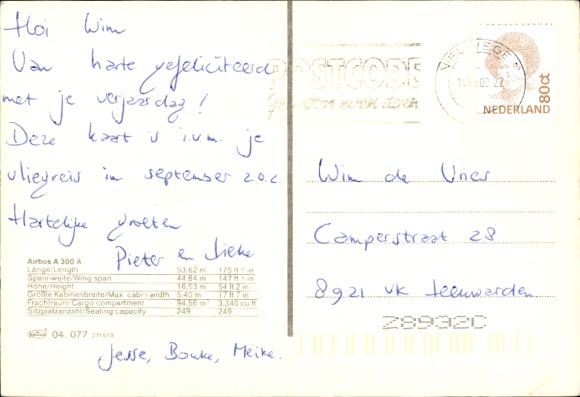 Hoi Wim
Van harte gefeliciteerd
met je verjaardag!
Deze kaart is i.v.m. je
vliegreis in september a.s.
Hartelijke groeten
Pieter en
Jesse, Bouke, Meike.
Airbus A 300 A
Länge/Length 53,62 m 175 ft 1 in
Spannweite/Wing span 44,84 m 147 ft 1 in
Höhe/Height 16,53 m 54 ft 2 in
Größte Kabinenbreite/Max. cabin width 5,40 m 17 ft 7 in
Frachtraum/Cargo compartment 94,56 m³ 3,340 cu ft
Sitzplatzanzahl/Seating capacity 249 249
04. 077
POSTCODE
gewoon even doen
NEDERLAND
80ct
Wim de Vries
Camperstraat 28
8921 VK Leeuwarden
Z8932C